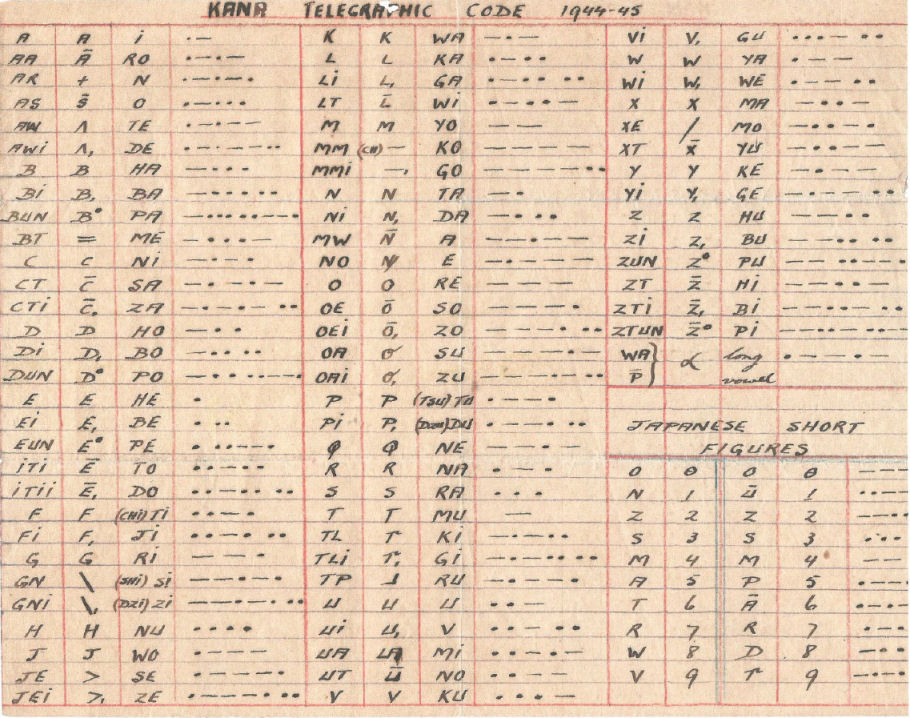 KANA TELEGRAPHIC CODE 1944-45
A A i ·— K K WA —·— Vi V, GU ···— ··
AA Ā RO ·—·— L L KA ·—·· W W YA ·——
AR + N ·—·—· Li L, GA ·—·· ·· Wi W, WE ·——··
AS S̄ O ·—··· LT L̄ Wi ·—··— X X MA —··—
AW Λ TE ·—·—— M M YO —— XE / MO —··—·
AWi Λ, DE ·—·——·· MM (CH) — KO ———— XT X̄ YU —··——
B B HA —··· MMi —, GO ————·· Y Y KE —·——
Bi B, BA —··· ·· N N TA —· Yi Y, GE —·——··
BUN B° PA —··· ··——· Ni N, DA —· ·· Z Z HU ——··
BT = ME —···— MW N̄ A ——·—— Zi Z, BU ——·· ··
C C Ni —·—· NO N̸ E —·——— ZUN Z° PU ——·· ··——·
CT C̄ SA —·—·— O O RE ——— ZT Z̄ Hi ——··—
CTi C̄, ZA —·—·— ·· OE Ō SO ———· ZTi Z̄, Bi ——··— ··
D D HO —·· OEi Ō, ZO ———· ·· ZTUN Z̄° Pi ——··— ··——·
Di D, BO —·· ·· OA σ SU ———·— WA } ∝ long ·——·—
DUN D° PO —·· ··——· OAi σ, ZU ———·— ·· P̄ vowel
E E HE · P P (TSU) TU ·——·
Ei E, BE · ·· Pi P, (DZU) DU ·——· ·· JAPANESE SHORT
EUN E° PE · ··——· Q Q NE ——·— FIGURES
iTi Ē TO ··—·· R R NA ·—· O 0 O 0 ———
iTii Ē, DO ··—·· ·· S S RA ··· N 1 Ū 1 ··——
F F (CHi) Ti ··—· T T MU — Z 2 Z 2 ——··
Fi F, Ji ··—· ·· TL T Ki —·—·· S 3 S 3 ···
G G Ri ——· TLi T, Gi —·—·· ·· M 4 M 4 ——
GN \ (SHi) Si ——·—· TP ⅃ RU —·——· A 5 P 5 ·——·
GNi \, (DZi) Zi ——·—· ·· U U U ··— T 6 Ā 6 ·—·—
H H NU ···· Ui U, V ··— ·· R 7 R 7 ·—·
J J WO ·——— UA UA Mi ··—·— W 8 D 8 —··
JE > SE ·———· UT Ū NO ··—— V 9 T 9 —·—··
JEi >, ZE ·———· ·· V V KU ···—